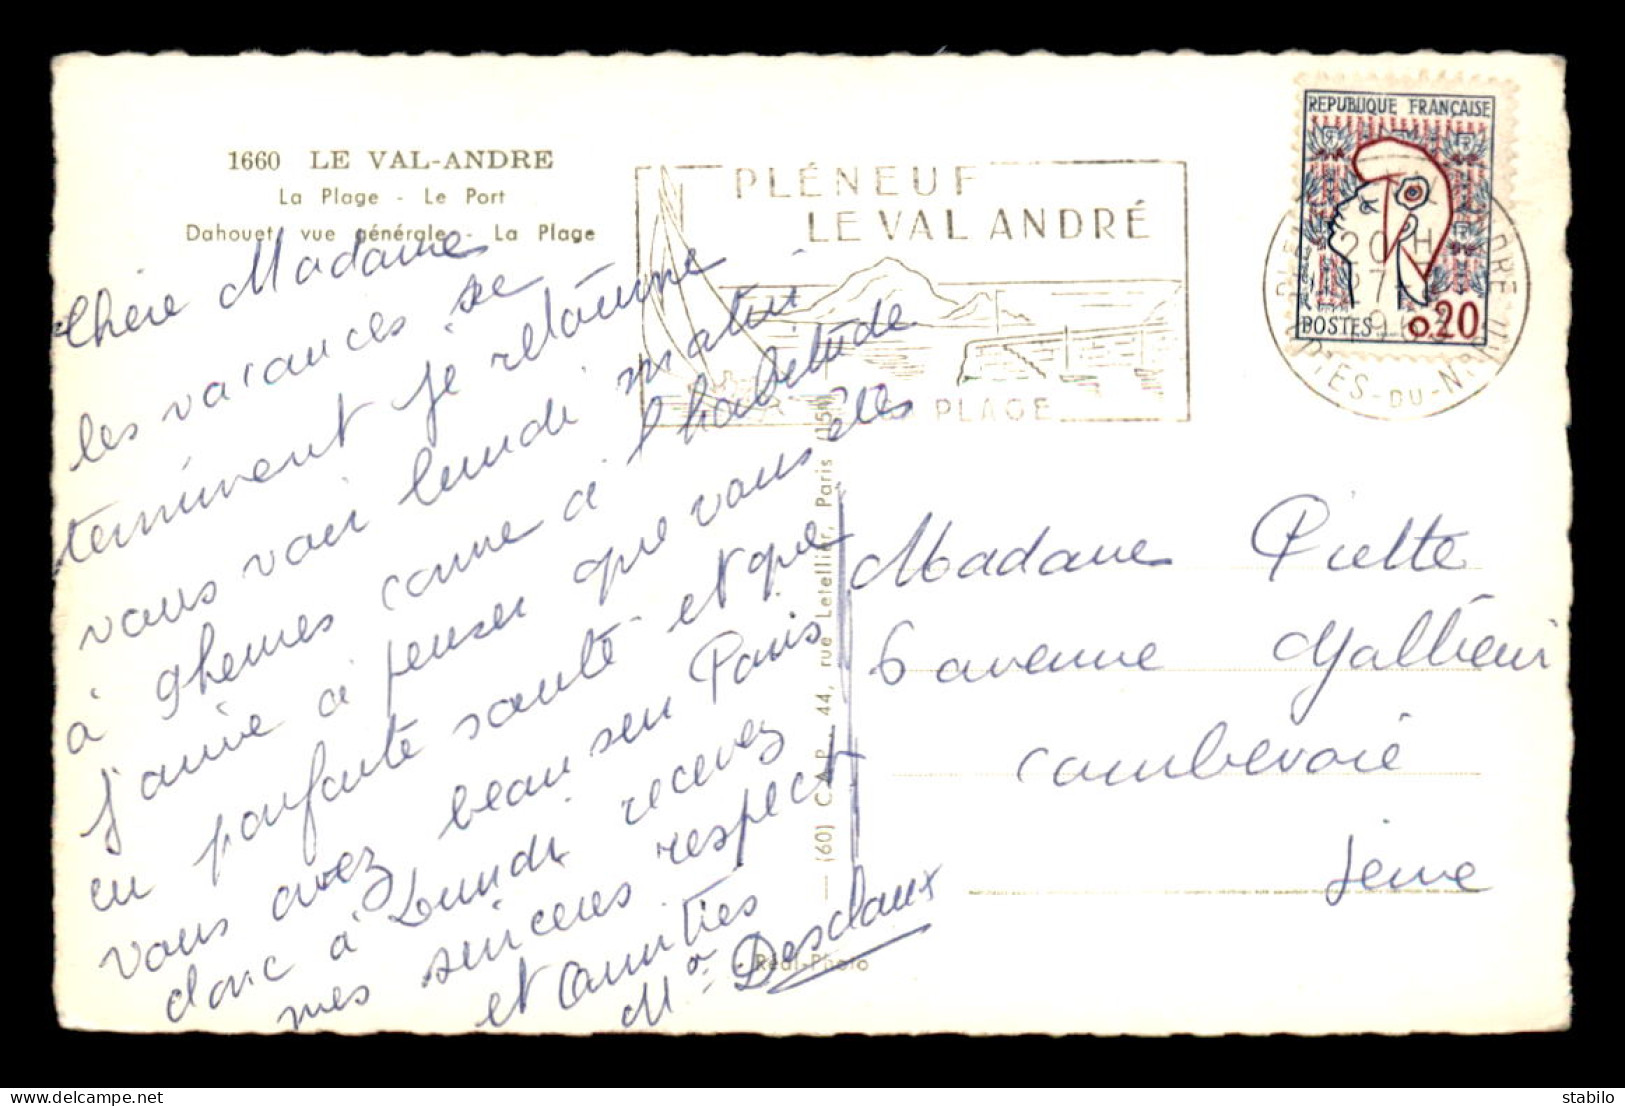 1660 LE VAL-ANDRE
La Plage - Le Port
Dahouet, vue générale - La Plage
PLÉNEUF
LE VAL ANDRÉ
LA PLAGE
REPUBLIQUE FRANÇAISE
POSTES 0.20
20 H
27
CÔTES-DU-NORD
Chère Madame
les vacances se
terminent je retourne
vous voir lundi matin
à 9 heures comme à l'habitude
j'aime à penser que vous êtes
en parfaite santé et que
vous avez beau sur Paris
donc à Lundi recevez
mes sincères respect
et amitiés
Mr Desclaux
Madame Piette
6 avenue Galliéni
Courbevoie
Seine
— (60) C.A.P. — 44, rue Letellier, Paris (15e)
Réal-Photo
stabilo